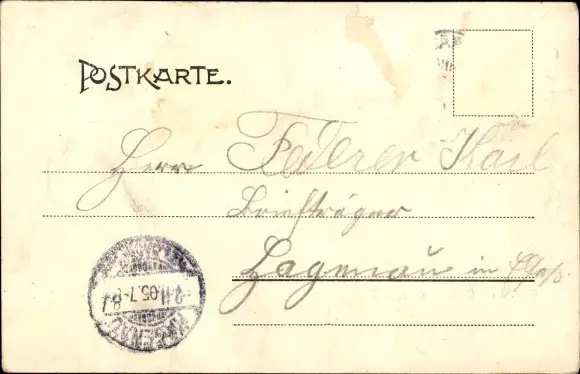 POSTKARTE.
Herr Federer Karl
Briefträger
Hagenau in Elsaß.
HAGENAU
2.11.05.7-8